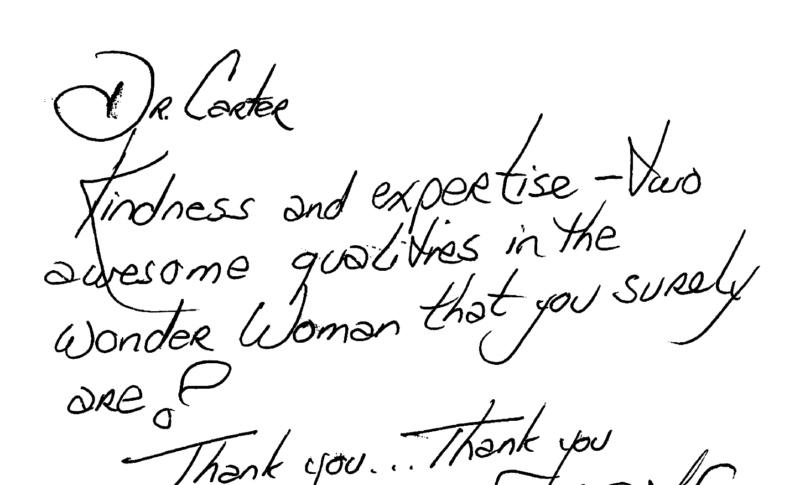 Dr. Carter
Kindness and expertise - Two
awesome qualities in the
Wonder Woman that you surely
are.
Thank you... Thank you